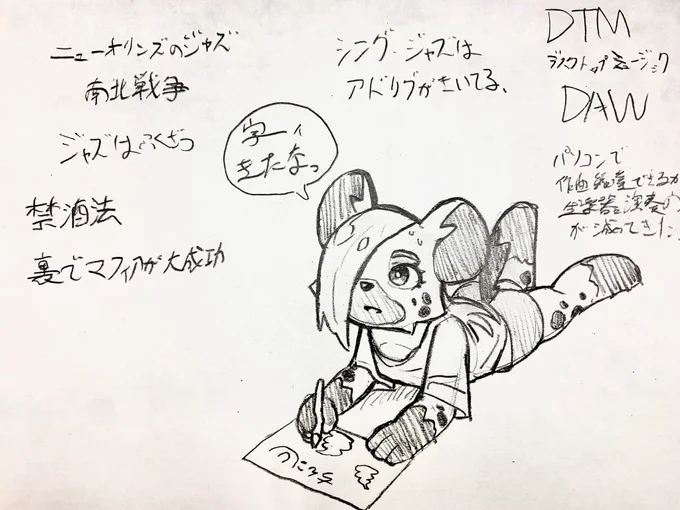 ニューオリンズのジャズ
南北戦争
ジャズはふくざつ
禁酒法
裏でマフィアが大成功
シング・ジャズは
アドリブがきいてる、
字ーィ
きたなっ
DTM
デスクトップミュージック
DAW
パソコンで
作曲 編集できるか
生楽器を演奏
が減ってきた